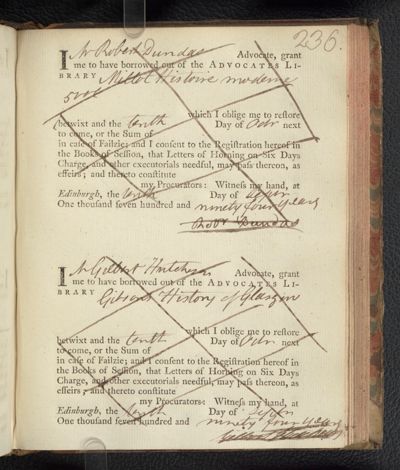 236.
I Mr Robert Dundas Advocate, grant
me to have borrowed out of the ADVOCATES LI-
BRARY Millot Histoire moderne
5 vols
which I oblige me to restore
betwixt and the tenth Day of Octr next
to come, or the Sum of
in case of Failzie; and I consent to the Registration hereof in
the Books of Session, that Letters of Horning on Six Days
Charge, and other executorials needful, may pass thereon, as
effeirs; and thereto constitute
my Procurators: Witness my hand, at
Edinburgh, the tenth Day of
One thousand seven hundred and ninety four years
Robt Dundas
I Mr Gilbert Hutcheson Advocate, grant
me to have borrowed out of the ADVOCATES LI-
BRARY Gibson's History of Glasgow
which I oblige me to restore
betwixt and the tenth Day of Octr next
to come, or the Sum of
in case of Failzie; and I consent to the Registration hereof in
the Books of Session, that Letters of Horning on Six Days
Charge, and other executorials needful, may pass thereon, as
effeirs; and thereto constitute
my Procurators: Witness my hand, at
Edinburgh, the tenth Day of
One thousand seven hundred and ninety four years